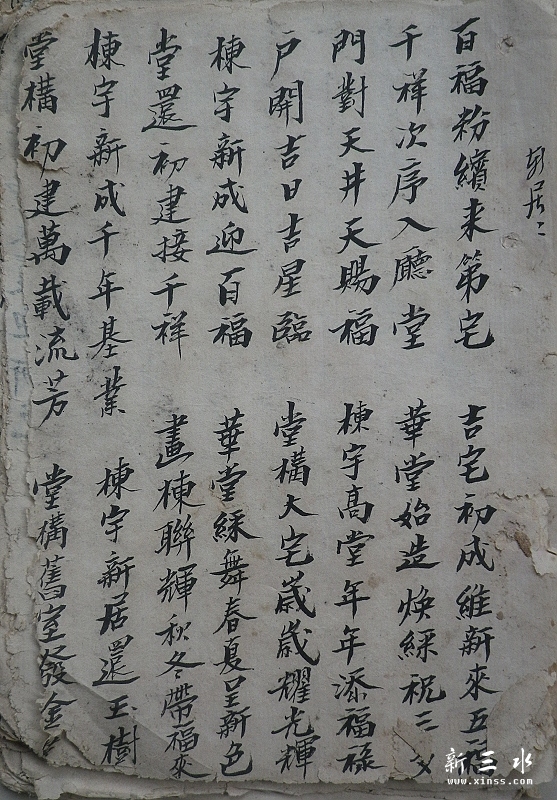 新居二
百福粉繽来第宅
千祥次序入廳堂
門對天井天賜福
户開吉日吉星臨
棟宇新成迎百福
堂還初建接千祥
棟宇新成千年基業
堂構初建萬載流芳
吉宅初成維新來五福
華堂始造煥綵祝三
棟宇高堂年年添福祿
堂構大宅歲歲耀光輝
華堂綵舞春夏呈新色
畫棟聯輝秋冬帶福來
棟宇新居還玉樹
堂構舊室發金
新三水
www.xinss.com